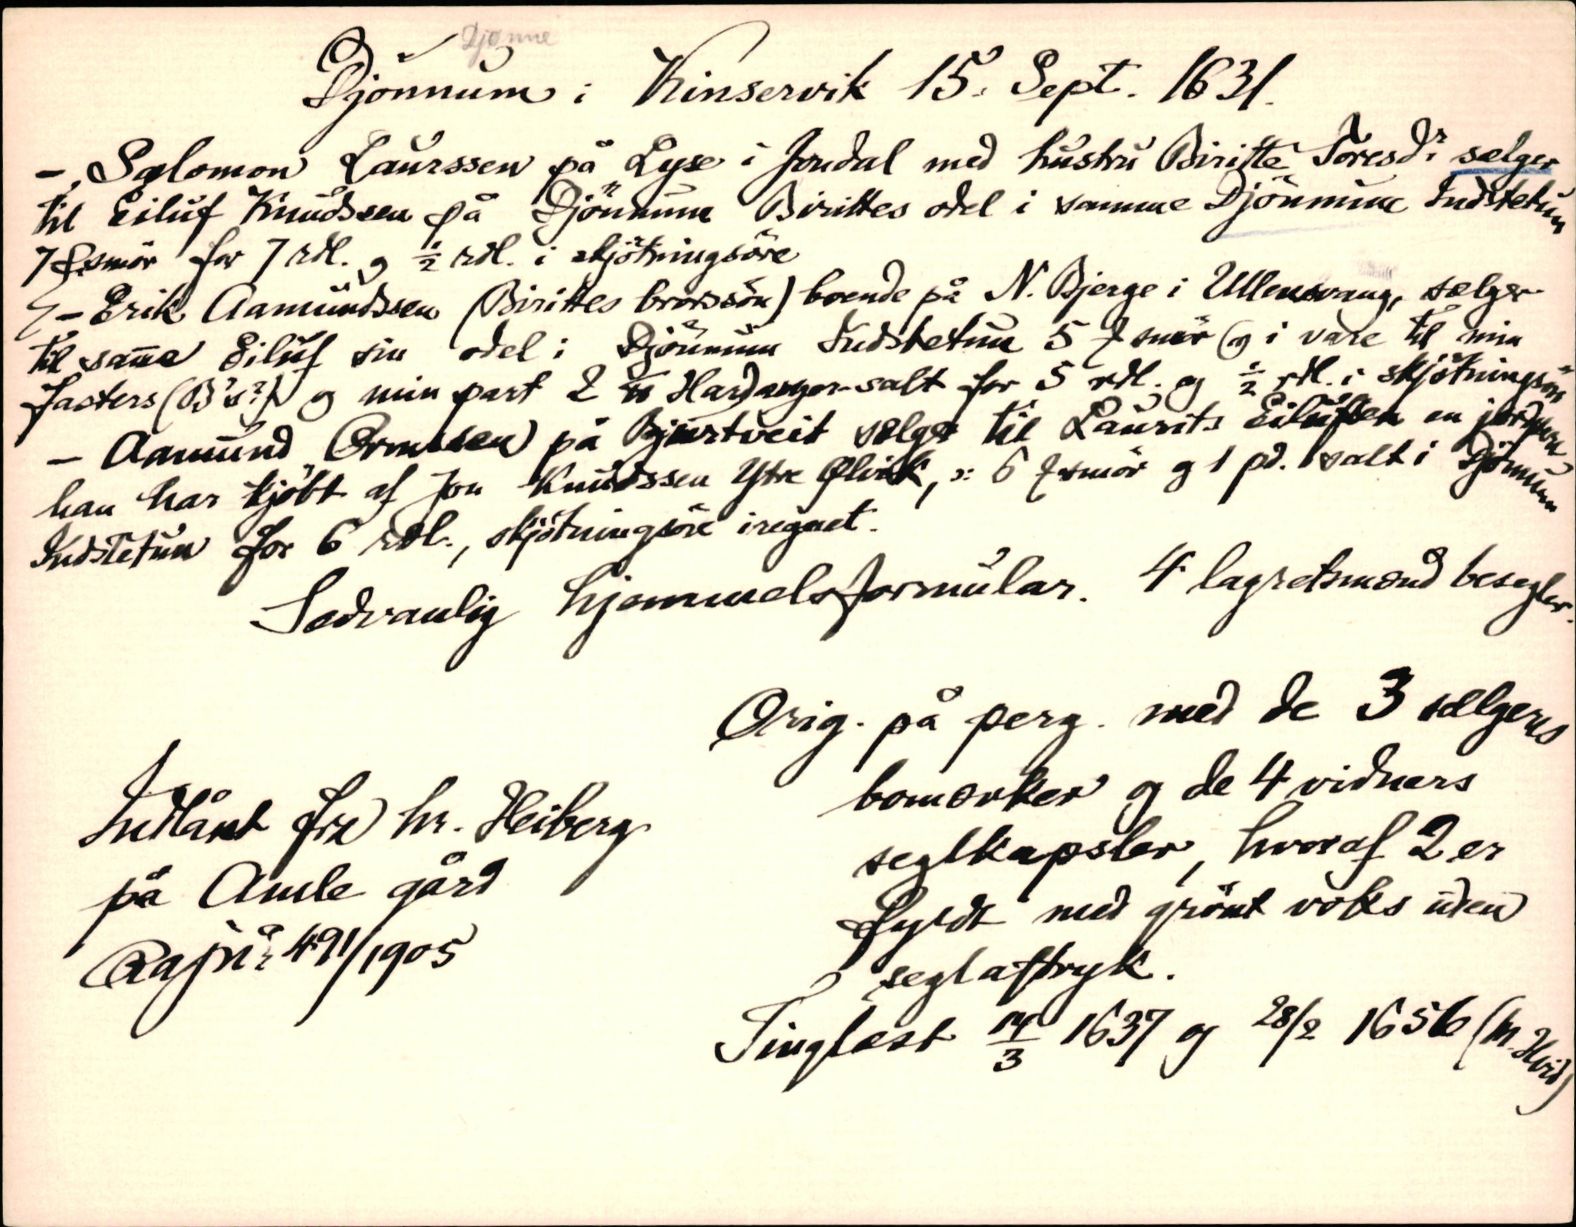 Djønne
Djönnum i Kinservik 15. Sept. 1631.
– Salomon Laurssen på Lyse i Jondal med hustru Biritte Toresd:r sælger
til Eiluf Knudssen på Djönnum Birittes odel i samme Djönnum Indstetun
7 smör for 7 rdl. og ½ rdl. i skjötningsöre
– Erik Aamundssen (Birittes brorssön) boende på N. Bjerge i Ullensvang, sælger
til samme Eiluf sin odel i Djönnum Indstetun 5 smör (og i vare til min
fasters (B's?) og min part 2 Hardanger-salt for 5 rdl. og ½ rdl. i skjötningsöre
– Aamund Ormssen på Bjurtveit sælger til Laurits Eilufsen en
han har kjöbt af Jon Knudssen Ytre Ølvik, ɔ: 6 smör og 1 pd. salt i Djönnum
Indstetun for 6 rdl., skjötningsöre iregnet.
Sedvanlig hjemmelsformular. 4 lagretsmænd besegler.
Orig. på perg. med de 3 sælgeres
bomærker og de 4 vidners
seglkapsler, hvoraf 2 er
fyldt med grönt voks uden
seglaftryk.
Tinglæst 14/3 1637 og 28/2 1656 (M. Hvid)
Indlånt fra hr. Heiberg
på Amle gård
Rajnr 491/1905